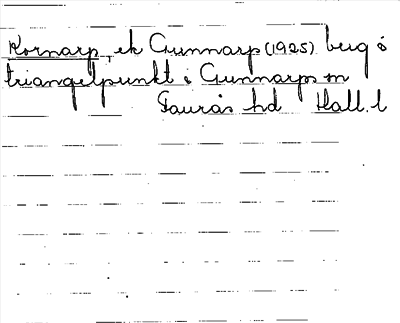 Kornarp, ek Gunnarp (1925) beg o
triangelpunkt i Gunnarps sn
Faurås hd Hall. l